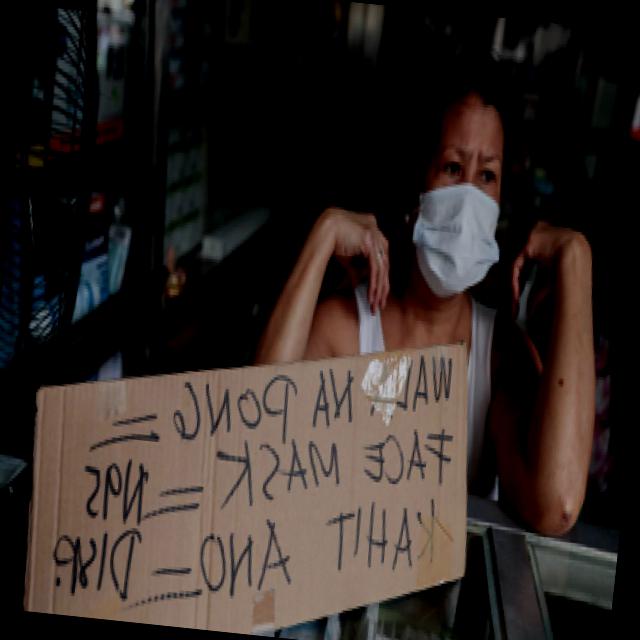 WALA NA PONG =
FACE MASK = N95
KAHIT ANO =